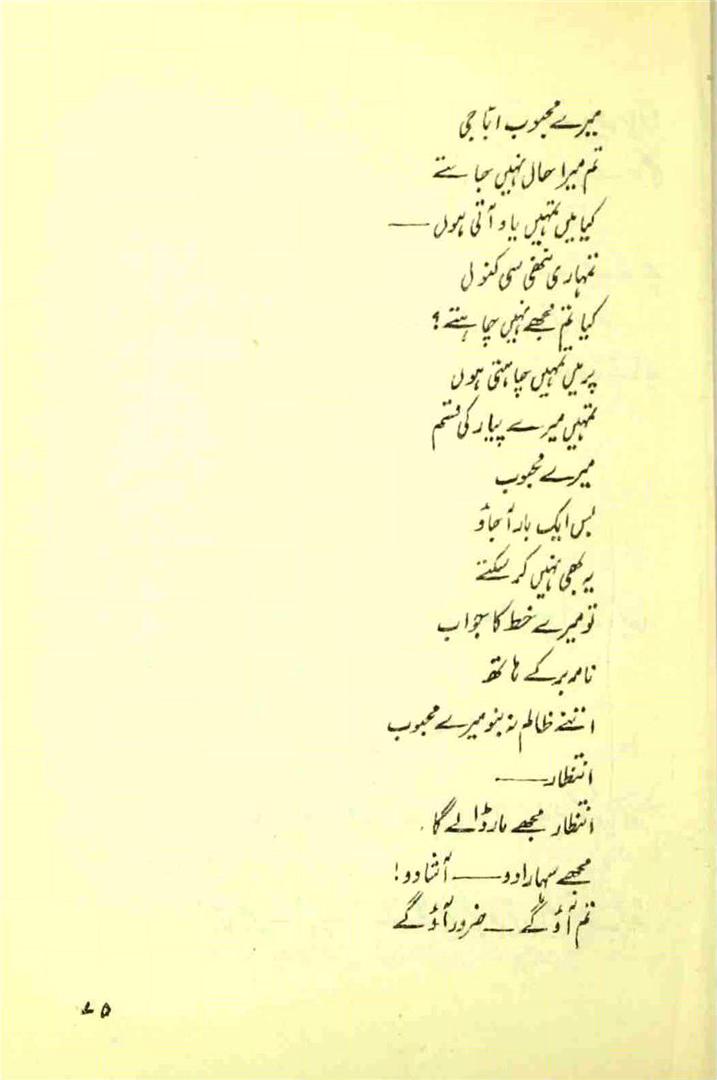 میرے محبوب ابّا جی
تم میرا حال نہیں جانتے
کیا میں تمہیں یاد آتی ہوں ——
تمہاری ننھی سی کنول
کیا تم مجھے نہیں چاہتے؟
پر میں تمہیں چاہتی ہوں
تمہیں میرے پیار کی قسم
میرے محبوب
بس ایک بار آ جاؤ
یہ بھی نہیں کر سکتے
تو میرے خط کا جواب
نامہ بر کے ہاتھ
اتنے ظالم نہ بنو میرے محبوب
انتظار ——
انتظار مجھے مار ڈالے گا.
مجھے سہارا دو —— آشا دو!
تم آؤ گے — ضرور آؤ گے